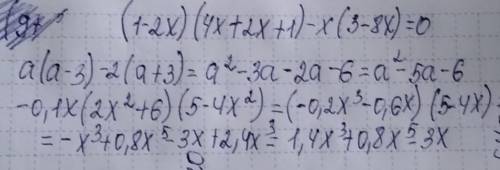 (1-2x)(4x+2x+1)-x(3-8x)=0
a(a-3)-2(a+3)=a²-3a-2a-6=a²-5a-6
-0,1x(2x²+6)(5-4x²)=(-0,2x³-0,6x)(5-4x)
=-x³+0,8x⁵-3x+2,4x³=1,4x³+0,8x⁵-3x